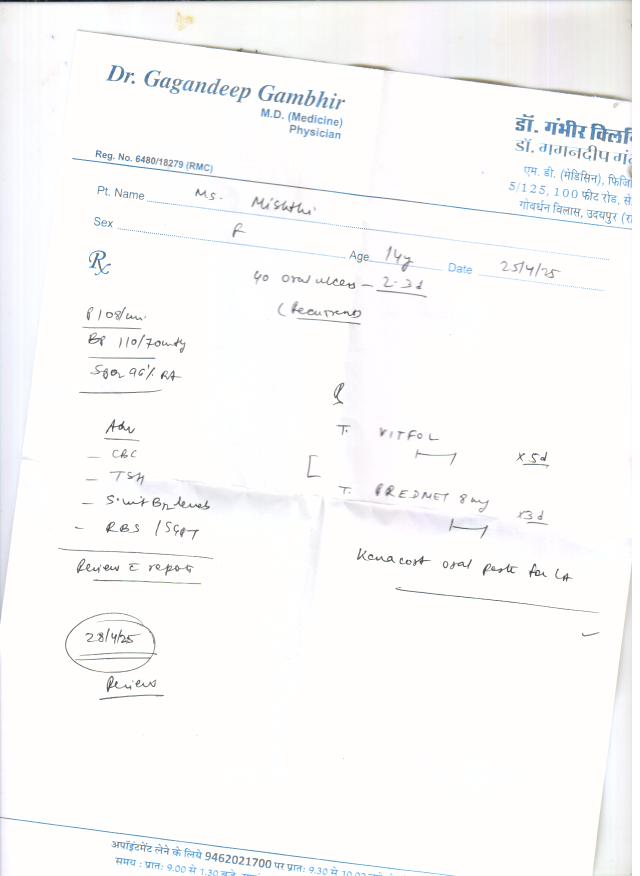 Dr. Gagandeep Gambhir
M.D. (Medicine)
Physician
Reg. No. 6480/18279 (RMC)
डॉ. गंभीर क्लिनि
डॉ. गगनदीप गं
एम. डी. (मेडिसिन), फिजि
5/125, 100 फीट रोड, से
गोवर्धन विलास, उदयपुर (रा
Pt. Name Ms. Mishthi
Sex F Age 14y Date 25/4/25
Rx
oral ulcers - 2-3d
(Recurrent)
P 108/min
BP 110/70mmHg
SpO2 96% RA
Adv
- CBC
- TSH
- S. vit B12 levels
- RBS / SGPT
Review c reports
28/4/25
Review
R
T. VITFOL x 5d
T. PREDMET 8mg x3d
Kenacort oral paste for LA
अपॉइंटमेंट लेने के लिये 9462021700 पर प्रातः 9.30 से
समय : प्रातः 9.00 से 1.30 बजे,